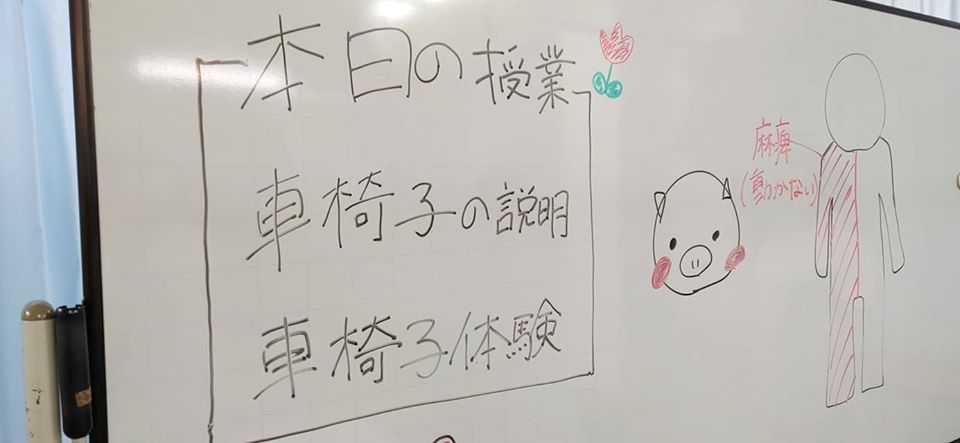 本日の授業
車椅子の説明
車椅子体験
麻痺
(動かない)